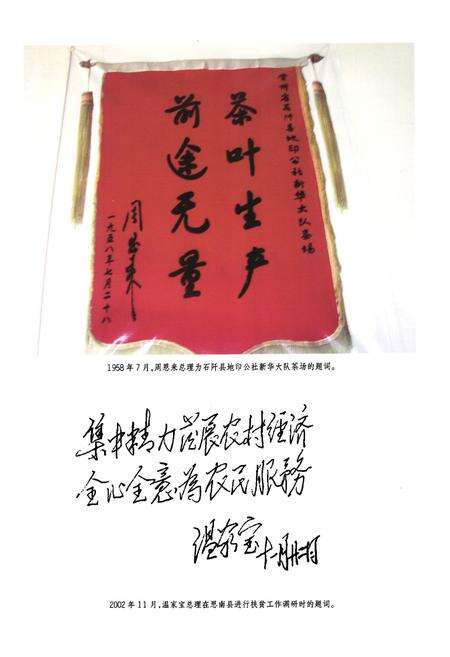 贵州省石阡县地印公社新华大队茶场
茶叶生产
前途无量
周恩来
一九五八年七月二十八
1958年7月,周恩来总理为石阡县地印公社新华大队茶场的题词。
集中精力发展农村经济
全心全意為农民服務
温家宝
2002年11月,温家宝总理在思南县进行扶贫工作调研时的题词。